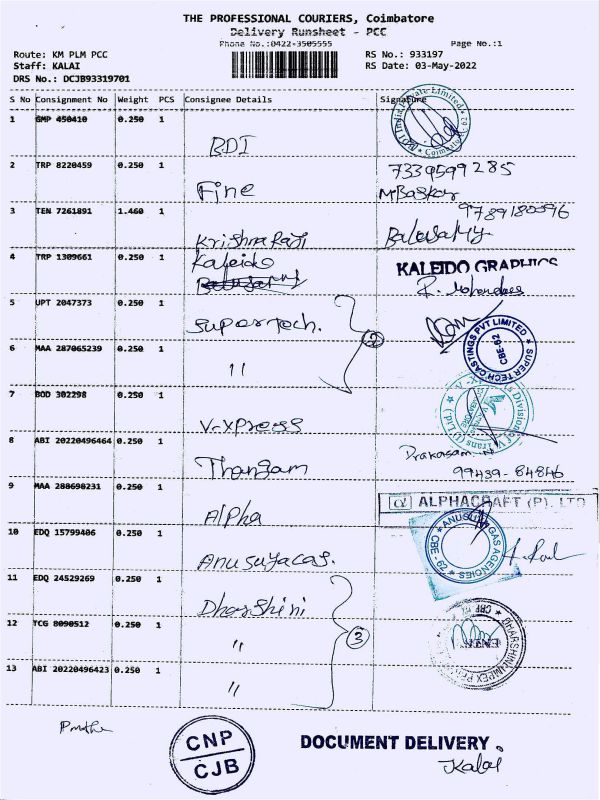 THE PROFESSIONAL COURIERS, Coimbatore
Delivery Runsheet - PCC
Phone No.:0422-3505555
Page No.:1
Route: KM PLM PCC
RS No.: 933197
Staff: KALAI
RS Date: 03-May-2022
DRS No.: DCJB93319701
S No Consignment No Weight PCS Consignee Details Signature
1 GMP 450410 0.250 1
BDI
BDI India Private Limited
Coimbatore-62
2 TRP 8220459 0.250 1
Fine
7339599285
M Baskar
3 TEN 7261891 1.460 1
Krishna Raj
9789180596
Balusamy
4 TRP 1309661 0.250 1
Kaleido
KALEIDO GRAPHICS
5 UPT 2047373 0.250 1
Supertech.
SUPER TECH CASTINGS PVT LIMITED
CBE-62
6 MAA 287065239 0.250 1
"
2
7 BOD 302298 0.250 1
V-Xpress
8 ABI 20220496464 0.250 1
Thangam
Prakasam
99439-84846
9 MAA 288690231 0.250 1
Alpha
α ALPHACRAFT (P). LTD
10 EDQ 15799406 0.250 1
Anusuya Gas.
ANUSUYA GAS AGENCIES
CBE-29
11 EDQ 24529269 0.250 1
Dharshini
12 TCG 8090512 0.250 1
"
3
13 ABI 20220496423 0.250 1
"
CNP
CJB
DOCUMENT DELIVERY.
Kalai